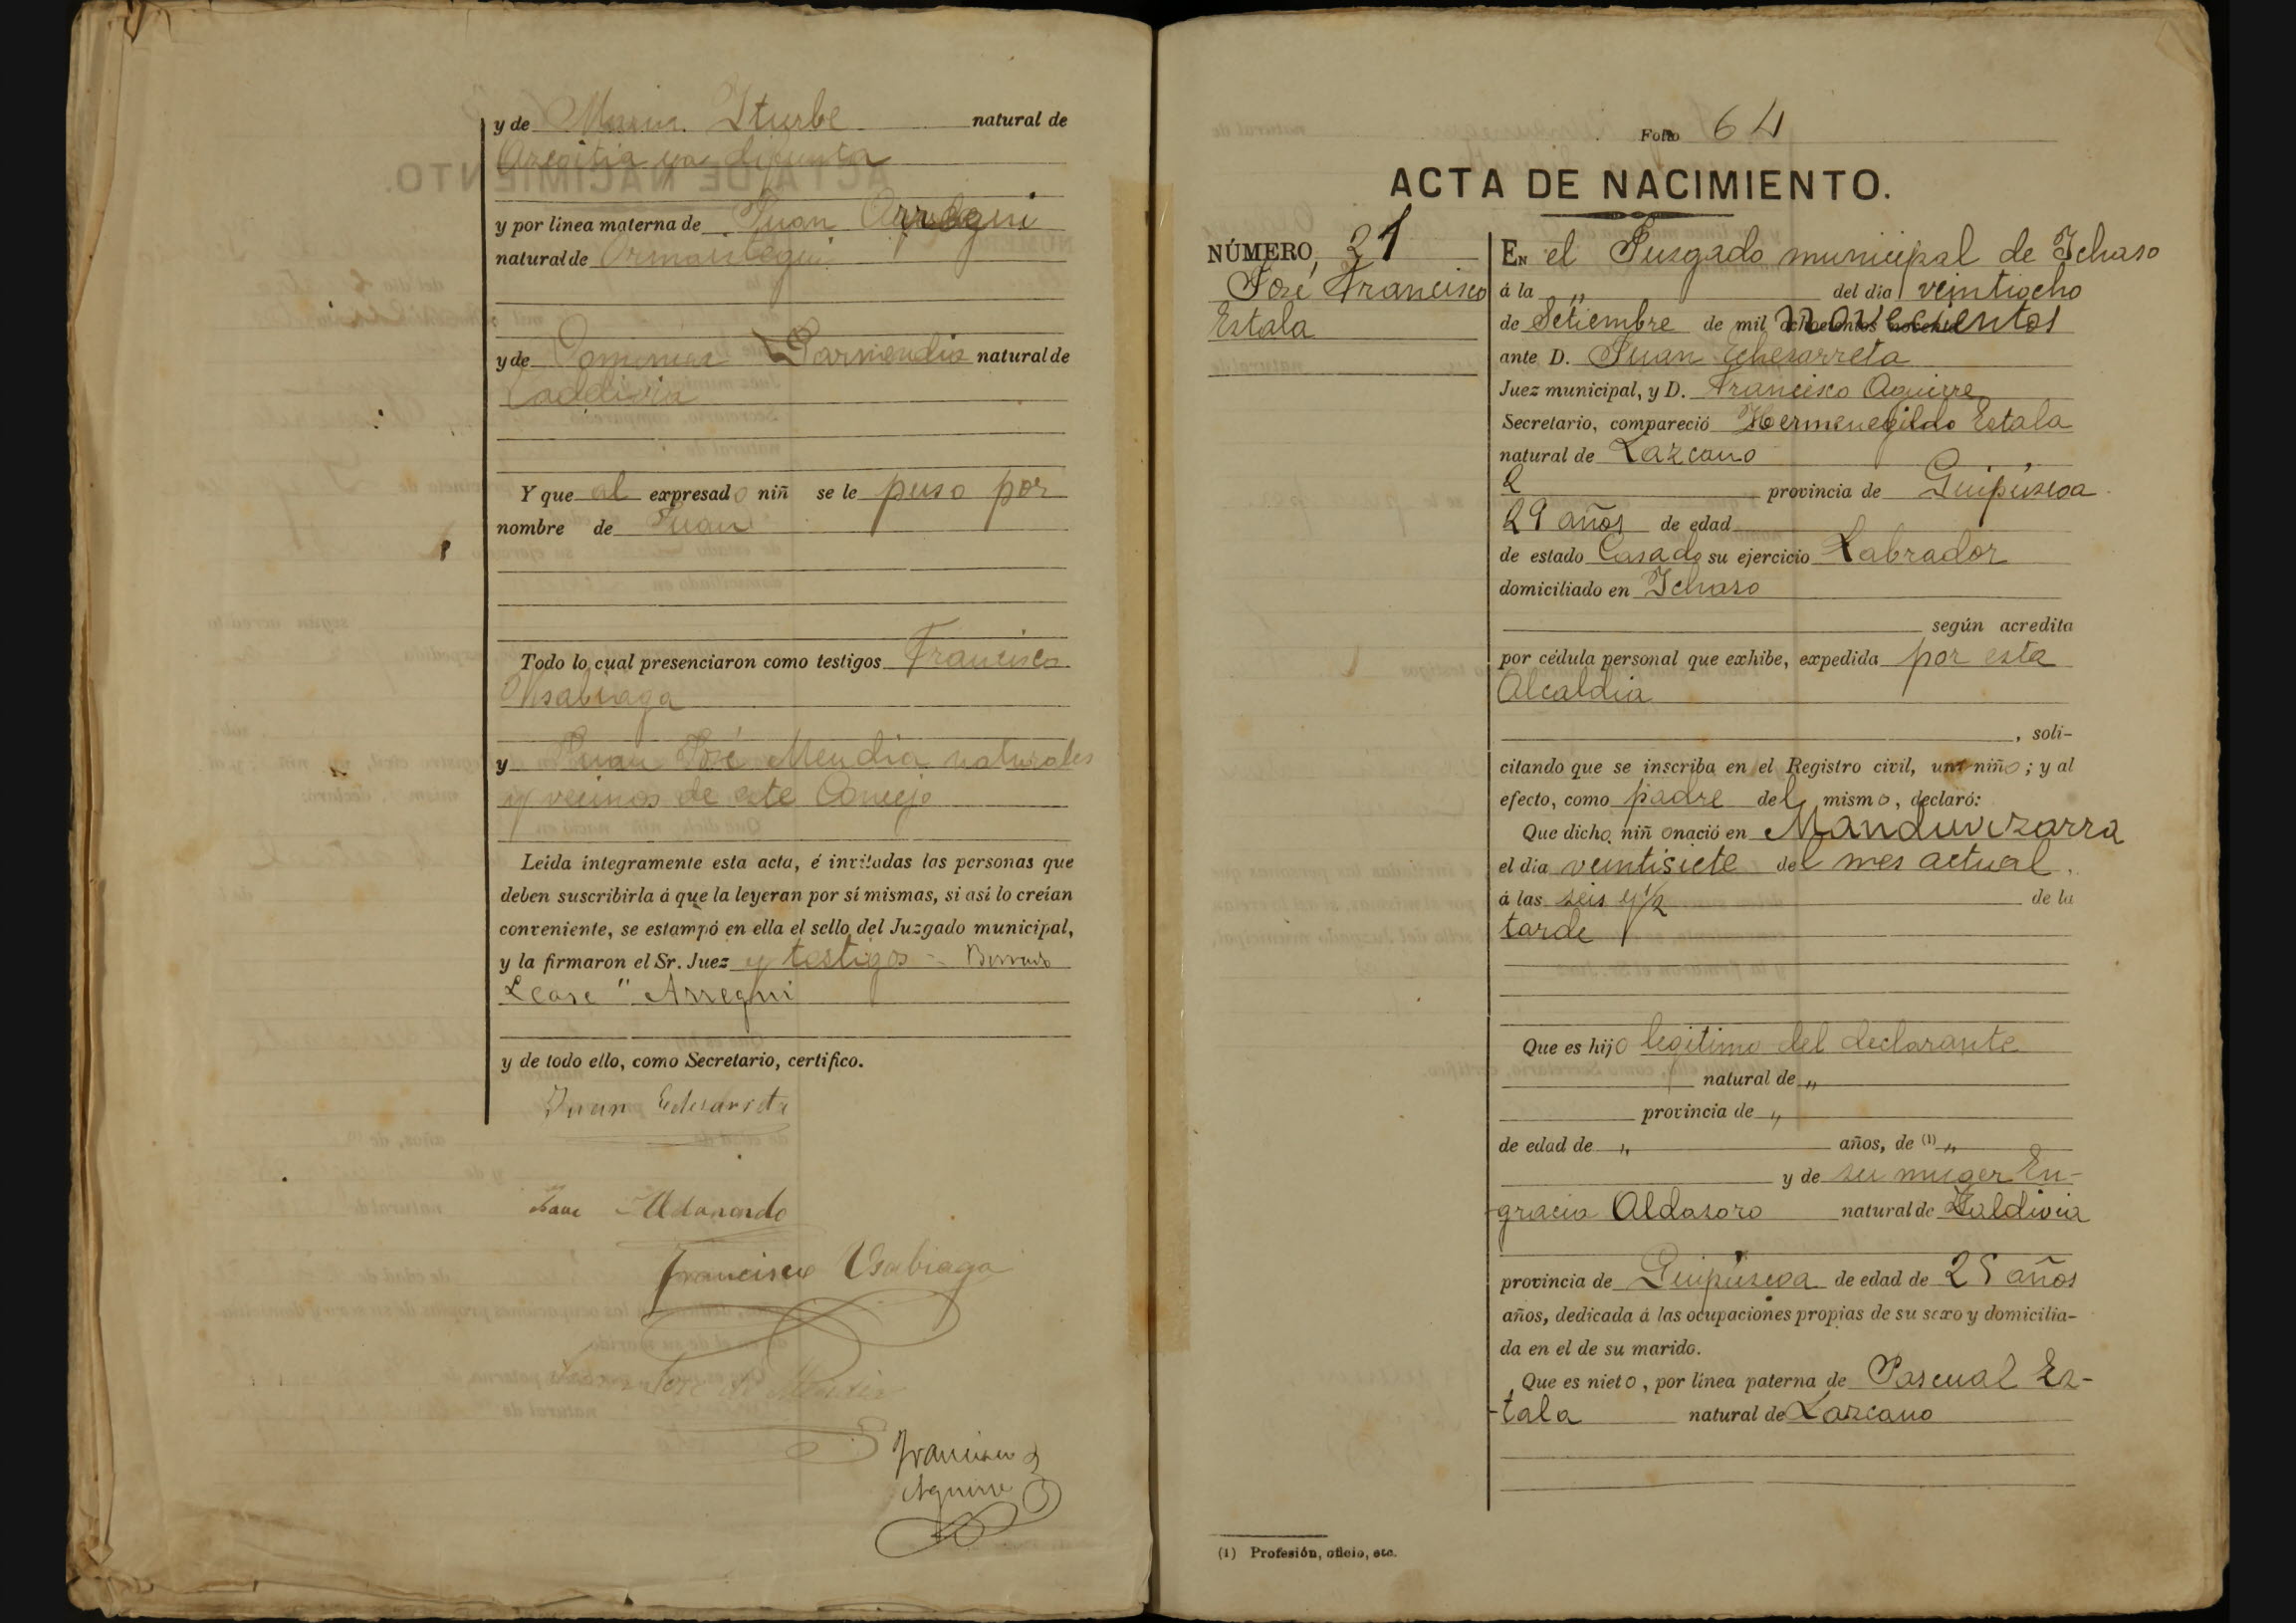 y de Maria Iturbe natural de
Azcoitia ya difunta
y por línea materna de Juan Arregui
natural de Ormaiztegui
y de Garmendia natural de
Zaldivia
Y que al expresado niñ se le puso por
nombre de Juan
Todo lo cual presenciaron como testigos Francisco
Usabiaga
y Juan José Mendia naturales
y vecinos de este Concejo
Leída íntegramente esta acta, é invitadas las personas que
deben suscribirla á que la leyeran por sí mismas, si así lo creían
conveniente, se estampó en ella el sello del Juzgado municipal,
y la firmaron el Sr. Juez y testigos = Borrado
Léase " Arregui
y de todo ello, como Secretario, certifico.
Juan Echezarreta
Francisco Usabiaga
José Mendia
Francisco
Aguirre
Folio 64
ACTA DE NACIMIENTO.
NÚMERO, 21
José Francisco
Estala
En el Jusgado municipal de Ichaso
á la " del día veintiocho
de Setiembre de mil novecientos
ante D. Juan Echezarreta
Juez municipal, y D. Francisco Aguirre
Secretario, compareció Hermenegildo Estala
natural de Lazcano
provincia de Guipúscoa
29 años de edad
de estado Casado su ejercicio Labrador
domiciliado en Ichaso
según acredita
por cédula personal que exhibe, expedida por esta
Alcaldia
, soli-
citando que se inscriba en el Registro civil, un niño; y al
efecto, como padre del mismo, declaró:
Que dicho niñ o nació en Manduvizarra
el día veintisiete del mes actual
á las seis y 1/2 de la
tarde
Que es hijo legitimo del declarante
natural de "
provincia de "
de edad de " años, de (1) "
y de su muger En-
gracia Aldasoro natural de Zaldivia
provincia de Guipúscoa de edad de 25 años
años, dedicada á las ocupaciones propias de su sexo y domicilia-
da en el de su marido.
Que es nieto, por línea paterna de Pascual Es-
-tala natural de Lazcano
(1) Profesión, oficio, etc.